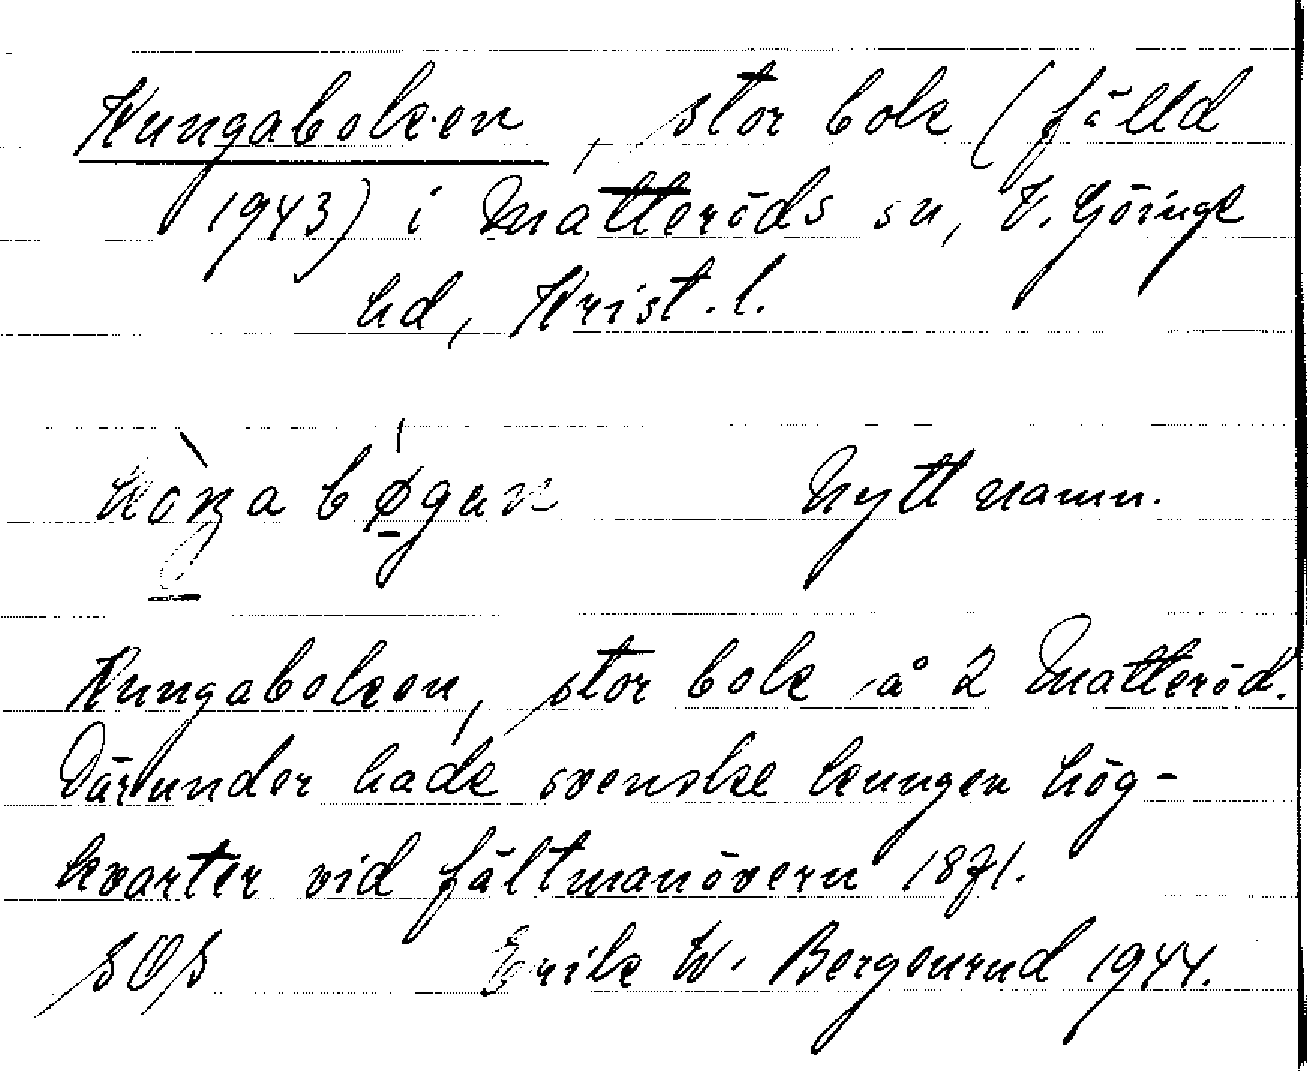 Kungaboken, stor bok (fälld
1943) i Matteröds sn, V. Göinge
hd, Krist. l.
Nytt namn.
Kungaboken, stor bok å 2 Matteröd.
Därunder hade svenske kungen hög-
kvarter vid fältmanövern 1871.
SOS Erik W. Bergenrud 1944.